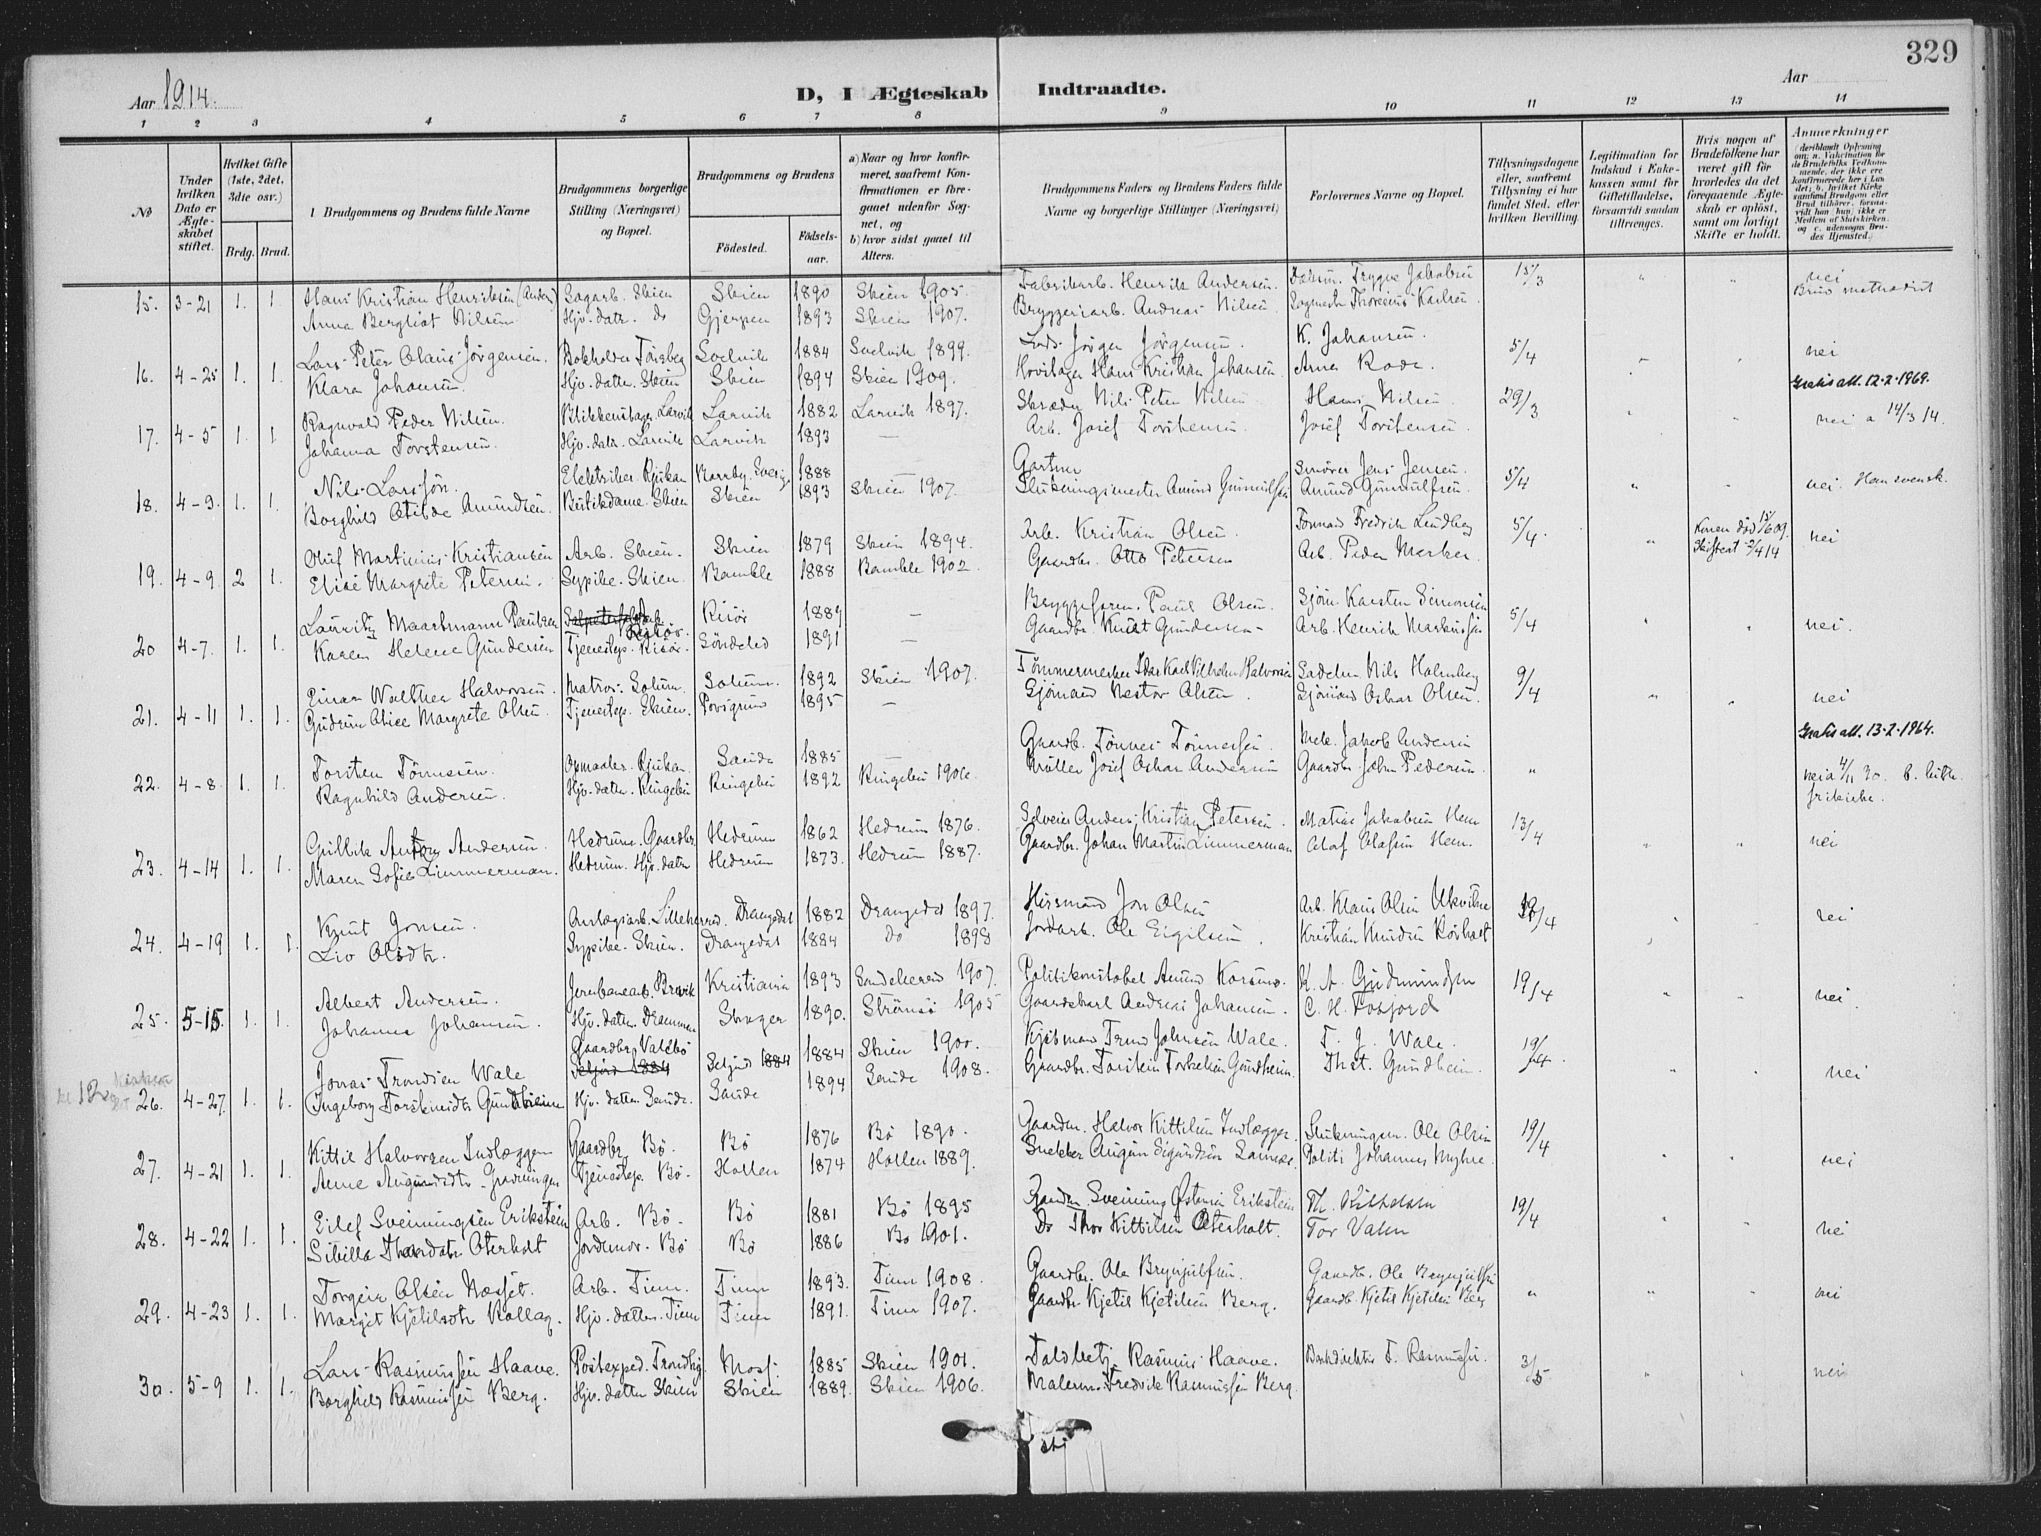 329
Aar 1914.
D, I Ægteskab Indtraadte.
Aar
1 2 3 4 5 6 7 8 9 10 11 12 13 14
No
Under hvilken Dato er Ægteskabet stiftet.
Hvilket Gifte (1ste, 2det, 3die osv.)
Brdg. Brud.
Brudgommens og Brudens fulde Navne
Brudgommens borgerlige Stilling (Næringsvei) og Bopæl.
Brudgommens og Brudens
Fødested.
Fødselsaar.
a) Naar og hvor konfirmeret, saafremt Konfirmationen er foregaaet udenfor Sognet, og
b) hvor sidst gaaet til Alters.
Brudgommens Faders og Brudens Faders fulde Navne og borgerlige Stillinger (Næringsvei)
Forlovernes Navne og Bopæl.
Tillysningsdagene eller, saafremt Tillysning ei har fundet Sted, efter hvilken Bevilling.
Legitimation for Indskud i Enkekassen samt for Giftetilladelse, forsaavidt saadan tiltrænges.
Hvis nogen af Brudefolkene har været gift før hvorledes da det foregaaende Ægteskab er opløst, samt om lovligt Skifte er holdt.
Anmerkninger
(deriblandt Oplysning om: a. Vakcination for de Brudefolks Vedkommende, der ikke ere konfirmerede her i Landet; b. hvilket Kirkesamfund Brudgom eller Brud tilhører, forsaavidt han (hun) ikke er Medlem af Statskirken, og c. udensogns Brudes Hjemsted.)
15. 3-21 1. 1. Hans Kristian Henriksen (Anders) Sagarb. Skien Skien 1890 Skien 1905. Fabrikarb. Henrik Andersen. Trygve Jakobsen 15/3 nei
Anna Bergliot Nilsen Hjv. datr. do Gjerpen 1893 Skien 1907. Bryggeriarb. Andreas Nilsen Karlsen Brud methodist
16. 4-25 1. 1. Lars Peter Olaus Jörgensen. Bokholder Tönsberg Svelvik 1884 Svelvik 1899. Lods Jörgen Jörgensen. K. Johansen 5/4 nei
Klara Johansen Hjv. datter. Skien Skien 1894 Skien 1909. Hans Kristian Johansen. Arne Rode.
Gratis att. 12-2-1969.
17. 4-5 1. 1 Ragnvald Peder Nilsen. Blikkenslager Larvik Larvik 1882 Larvik 1897. Skrædder Nils Peter Nilsen Hans Nilsen 29/3 nei a 14/3 14.
Johanna Torstensen Hjv. datr. Larvik Larvik 1893 — Arb. Josef Torstensen. Josef Torstensen.
18. 4-9. 1. 1. Nils Larssön. Elektriker. Rjukan Sverige 1888 — Gartner Jens Jensen. 5/4 nei. Han svensk.
Borghild Otilde Amundsen. Butikdame. Skien Skien 1893 Skien 1907. Slukningsmester Amund Gunnulfsen Amund Gunnulfsen.
19. 4-9. 2 1. Oluf Martinius Kristiansen Arb. Skien. Skien 1879 Skien 1894. Arb. Kristian Olsen. Formand Fredrik Lundberg 5/4. Konen död 15/6 09. nei
Elise Margrete Petersen. Sypike. Skien. Bamble 1888 Bamble 1902. Gaardbr. Otto Petersen Arb. Peder Skiftent 2/4 14
20 4-7. 1. 1. Lauritz Maartmann Paulsen Risör. Risör 1889 — Paul Olsen. Sjöm. Karsten Simonsen 5/4 nei.
Karen Helene Gundersen Tjenestep. Risör. Söndeled 1891 — Gaardbr. Knut Gundersen Arb. Henrik Markussen
21. 4-11 1. 1. Einar Walther Halvorsen. Matros. Solum. Solum. 1892 Skien 1907. Tömmermerker Karl Vilhelm Halvorsen Nils Holmberg 9/4
Gudrun Alice Margrete Olsen. Tjenestep. Skien. Porsgrund 1895 — Sjömand Nestor Olsen. Sjömand Oskar Olsen. nei
Gratis att. 13-2-1964.
22. 4-8. 1. 1. Torsten Tönnesen. Opmaaler. Rjukan. Saude 1885 — Gaardb. Tönnes Tönnessen. Mek. Jakob Andersen nei a 4/11 30. b. luth. frikirke.
Ragnhild Andersen. Hjv. datter. Ringebu Ringebu 1892 Ringebu 1906. Möller Josef Oskar Andersen Gaardbr. John Pedersen.
23. 4-14 1. 1. Gullik Anton Andersen. Hedrum. Gaardbr. Hedrum 1862 Hedrum 1876. Anders Kristian Petersen. Matias Jakobsen Hem 13/4 nei
Maren Sofie Limmerman. Hedrum. Hjv. datr. Hedrum 1873. Hedrum 1887. Gaardbr. Johan Martin Limmerman Olaf Olafsen Hem.
24. 4-19 1. 1. Knut Jonsen. Anlægsarb. Lilleherred. Drangedal 1882 Drangedal 1897. Husmand Jon Olsen Arb. Klaus Olsen 19/4 nei
Liv Olsdtr. Sypike. Skien. Drangedal 1884 Do 1898 Jordarb. Ole Eigilsen. Kristian Knudsen
25. 5-15. 1. 1. Albert Andersen. Jernbanearb. Brevik Kristiania 1893 1907. Politikonstabel Amund K. A. Gudmundsen 19/4 nei
Johanna Johansen. Hjv. datter. Drammen Skoger 1890. Strömsö 1905 Gaardskarl Andreas Johansen. C. H. Fosjord
26. 4-27. 1. 1. Jonas Trondsen Wale Gaardbr. Valebö Seljord 1884 Skien 1900. Trond Johnsen Wale. T. J. Wale. 19/4 nei
Ingeborg Torsteinsdtr Gundheim Hjv. datter. Saude. Saude 1894 Saude 1908. Gaardbr. Torstein Torkelsen Gundheim. Thst. Gundheim.
27. 4-21 1. 1. Kittil Halvorsen Indlæggen Gaardbr. Bö. Bö 1876 Bö 1890. Gaardm. Halvor Kittilsen Indlæggen. Slukningsm. Ole Olsen 19/4 nei
Anne Tjenestep. Bö. Hollen 1874 Hollen 1889. Snekker Politi Johannes Myhre.
28. 4-22 1. 1. Eilef Sveinungsen Erikstein Arb. Bö. Bö 1881 Bö 1895 Sveinung Östensen Erikstein Th. Kittilsen 19/4 nei
Sibilla Thorsdatr Oterholt Jordmor. Bö Bö 1886 Bö 1901. Do Thor Kittilsen Oterholt. Tor Valen
29. 4-23 1. 1. Torgeir Olsen Næsset. Arb. Tinn. Tinn 1893. Tinn 1908. Gaardbr. Ole Brynjulfsen. Gaardb. Ole Brynjulfsen nei
Margit Kjetilsdtr Rollag. Hjv. datter. Tinn Tinn 1891. Tinn 1907. Gaardbr Kjetil Kjetilsen Berg. Gaardb. Kjetil Kjetilsen Berg
30. 5-9 1. 1. Lars Rasmussen Haave. Postexped. Trondhj. Moss. 1885 Skien 1901. Toldbetj. Rasmus Haave. Bankdirektör T. Rasmussen. 3/5 nei
Borghild Rasmussen Berg. Hjv. datter Skien Skien 1889. Skien 1906. Malerm. Fredrik Rasmussen Berg.